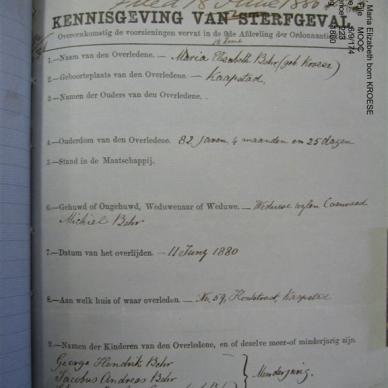 Filed 18 June 1880
KENNISGEVING VAN STERFGEVAL
Overeenkomstig de voorzieningen vervat in de 9de Afdeeling der Ordonnantie
1.—Naam van den Overledene. — Maria Elizabeth Behr (geb Kroese)
2.—Geboorteplaats van den Overledene. — Kaapstad
3.—Namen der Ouders van den Overledene.
4.—Ouderdom van den Overledene. 82 Jaren, 4 maanden en 25 dagen
5.—Stand in de Maatschappij.
6.—Gehuwd of Ongehuwd, Weduwenaar of Weduwe. — Weduwe wylen Coenraad
Michiel Behr
7.—Datum van het overlijden. — 11 Juny 1880
8.—Aan welk huis of waar overleden. — No. 59, Houtstraat, Kaapstad
9.—Namen der Kinderen van den Overledene, en of dezelve meer-of minderjarig zijn.
George Hendrik Behr
Jacobus Andreas Behr
Meerderjarig.
Maria Elizabeth born KROESE
MOOC
6/9/174
1880